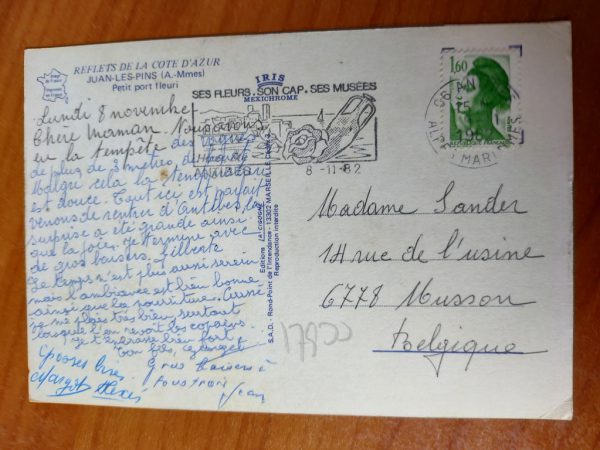 REFLETS DE LA COTE D'AZUR
JUAN-LES-PINS (A.-Mmes)
Petit port fleuri
IRIS
MEXICHROME
SES FLEURS. SON CAP. SES MUSÉES
ANTIBES
8-11-82
1,60
REPUBLIQUE FRANÇAISE
Lundi 8 novembre
Chère Maman. Nous avons
eu la tempête, des vagues
de plus de 3 mètres de haut.
Malgré cela la température
est douce. Tout ici est parfait
venons de rentrer d'Antibes, la
surprise a été grande ainsi
que la joie, je termine avec
de gros baisers. Gilberte
Le temps n'est plus aussi serein
mais l'ambiance est bien bonne
ainsi que la nourriture. Aussi
je me plais très bien, surtout
lorsque l'on revoit les copains.
je t'embrasse bien fort
Ton fils,
Grosses bises
Margot
Gros baisers à
tous trois
Jean
Editions "LA CIGOGNE"
S.A.D. - Rond-Point de l'Intendance - 13002 MARSEILLE
Reproduction interdite
Madame Sander
14 rue de l'usine
6778 Musson
Belgique